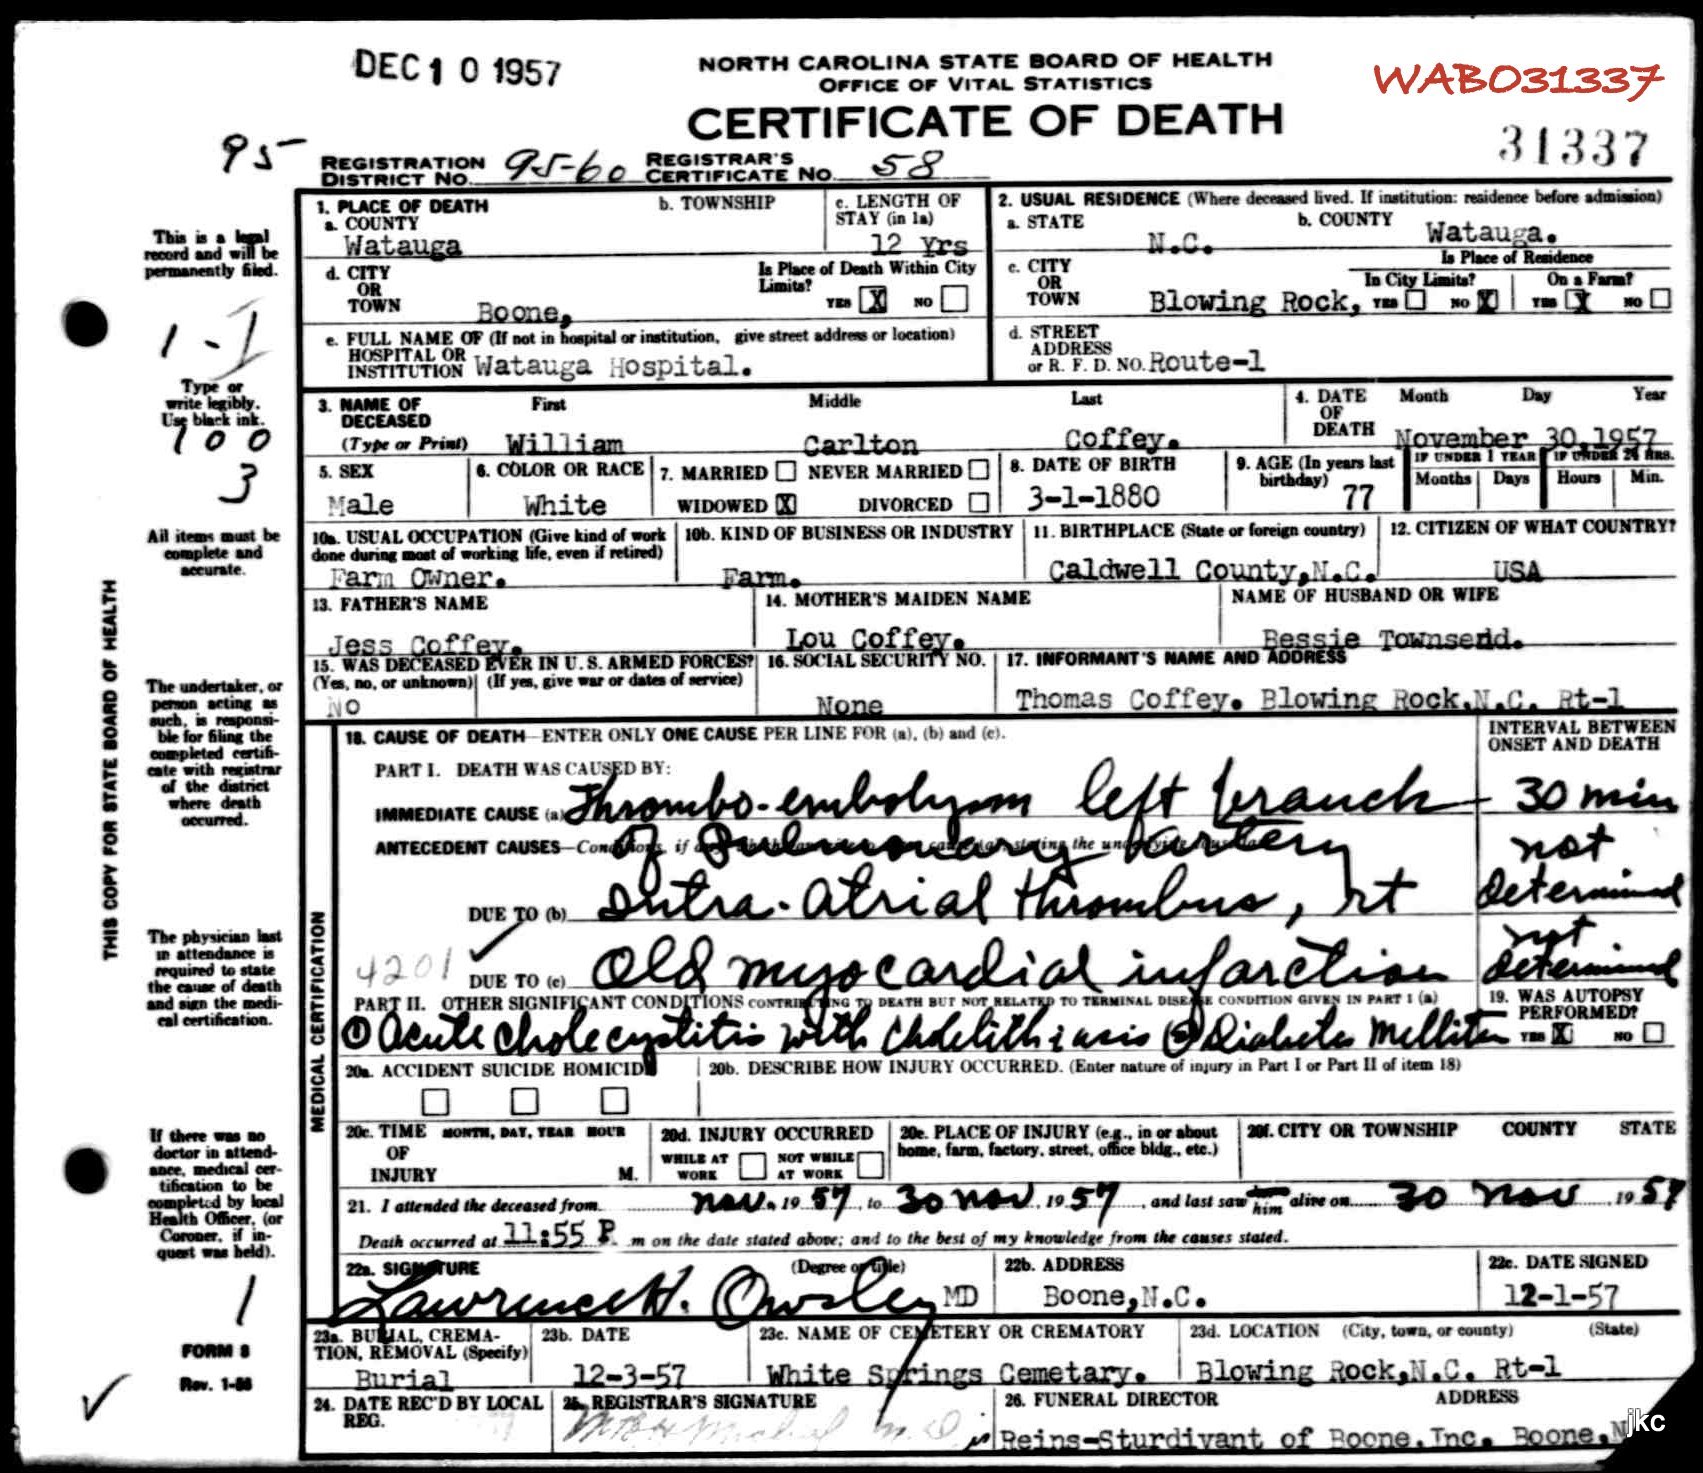 DEC 10 1957
NORTH CAROLINA STATE BOARD OF HEALTH
OFFICE OF VITAL STATISTICS
CERTIFICATE OF DEATH
WABO31337
31337
95
REGISTRATION DISTRICT NO. 95-60 REGISTRAR'S CERTIFICATE NO. 58
THIS COPY FOR STATE BOARD OF HEALTH
This is a legal
record and will be
permanently filed.
1-1
Type or
write legibly.
Use black ink.
100
3
All items must be
complete and
accurate.
The undertaker, or
person acting as
such, is responsi-
ble for filing the
completed certifi-
cate with registrar
of the district
where death
occurred.
The physician last
in attendance is
required to state
the cause of death
and sign the medi-
cal certification.
If there was no
doctor in attend-
ance, medical cer-
tification to be
completed by local
Health Officer, (or
Coroner, if in-
quest was held).
1
FORM 8
Rev. 1-56
1. PLACE OF DEATH
a. COUNTY
Watauga
b. TOWNSHIP
c. LENGTH OF
STAY (in 1a)
12 Yrs
d. CITY
OR
TOWN
Boone,
Is Place of Death Within City
Limits?
YES X NO
e. FULL NAME OF (If not in hospital or institution, give street address or location)
HOSPITAL OR
INSTITUTION Watauga Hospital.
2. USUAL RESIDENCE (Where deceased lived. If institution: residence before admission)
a. STATE
N.C.
b. COUNTY
Watauga.
c. CITY
OR
TOWN
Blowing Rock,
Is Place of Residence
In City Limits? On a Farm?
YES NO X YES X NO
d. STREET
ADDRESS
or R. F. D. NO. Route-1
3. NAME OF
DECEASED
(Type or Print)
First Middle Last
William Carlton Coffey.
4. DATE
OF
DEATH
Month Day Year
November 30,1957
5. SEX
Male
6. COLOR OR RACE
White
7. MARRIED NEVER MARRIED
WIDOWED X DIVORCED
8. DATE OF BIRTH
3-1-1880
9. AGE (In years last
birthday)
77
IF UNDER 1 YEAR IF UNDER 24 HRS.
Months Days Hours Min.
10a. USUAL OCCUPATION (Give kind of work
done during most of working life, even if retired)
Farm Owner.
10b. KIND OF BUSINESS OR INDUSTRY
Farm.
11. BIRTHPLACE (State or foreign country)
Caldwell County,N.C.
12. CITIZEN OF WHAT COUNTRY?
USA
13. FATHER'S NAME
Jess Coffey.
14. MOTHER'S MAIDEN NAME
Lou Coffey.
NAME OF HUSBAND OR WIFE
Bessie Townsend.
15. WAS DECEASED EVER IN U. S. ARMED FORCES?
(Yes, no, or unknown) (If yes, give war or dates of service)
No
16. SOCIAL SECURITY NO.
None
17. INFORMANT'S NAME AND ADDRESS
Thomas Coffey. Blowing Rock,N.C. Rt-1
MEDICAL CERTIFICATION
18. CAUSE OF DEATH—ENTER ONLY ONE CAUSE PER LINE FOR (a), (b) and (c).
INTERVAL BETWEEN
ONSET AND DEATH
PART I. DEATH WAS CAUSED BY:
IMMEDIATE CAUSE (a) Thrombo-embolysm left branch 30 min
of Pulmonary Artery
ANTECEDENT CAUSES—Conditions, if
DUE TO (b) Intra-Atrial thrombus, rt not determined
4201
DUE TO (c) Old myocardial infarction not determined
PART II. OTHER SIGNIFICANT CONDITIONS CONTRIBUTING TO DEATH BUT NOT RELATED TO TERMINAL DISEASE CONDITION GIVEN IN PART I (a)
① Acute cholecystitis with cholelithiasis ② Diabetes Mellitus
19. WAS AUTOPSY
PERFORMED?
YES X NO
20a. ACCIDENT SUICIDE HOMICIDE
20b. DESCRIBE HOW INJURY OCCURRED. (Enter nature of injury in Part I or Part II of item 18)
20c. TIME MONTH, DAY, YEAR HOUR
OF
INJURY M.
20d. INJURY OCCURRED
WHILE AT WORK NOT WHILE AT WORK
20e. PLACE OF INJURY (e.g., in or about
home, farm, factory, street, office bldg., etc.)
20f. CITY OR TOWNSHIP COUNTY STATE
21. I attended the deceased from Nov. 19 57, to 30 Nov, 19 57, and last saw him alive on 30 Nov 19 57
Death occurred at 11:55 P. m on the date stated above; and to the best of my knowledge from the causes stated.
22a. SIGNATURE (Degree or title)
Lawrence H. Owsley MD
22b. ADDRESS
Boone,N.C.
22c. DATE SIGNED
12-1-57
23a. BURIAL, CREMA-
TION, REMOVAL (Specify)
Burial
23b. DATE
12-3-57
23c. NAME OF CEMETERY OR CREMATORY
White Springs Cemetary.
23d. LOCATION (City, town, or county) (State)
Blowing Rock,N.C. Rt-1
24. DATE REC'D BY LOCAL
REG.
25. REGISTRAR'S SIGNATURE
26. FUNERAL DIRECTOR ADDRESS
Reins-Sturdivant of Boone,Inc. Boone,N
jkc